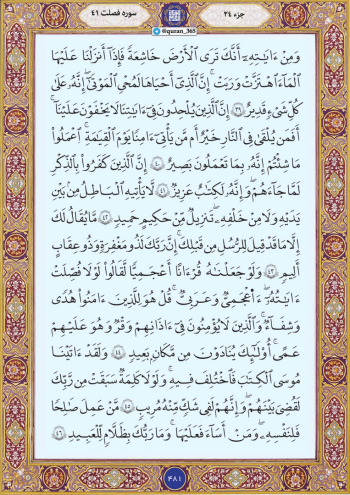 سوره فصلت ٤١
@quran_365
جزء ٢٤
وَمِنْ ءَايَـٰتِهِۦٓ أَنَّكَ تَرَى ٱلْأَرْضَ خَـٰشِعَةً فَإِذَآ أَنزَلْنَا عَلَيْهَا
ٱلْمَآءَ ٱهْتَزَّتْ وَرَبَتْ ۚ إِنَّ ٱلَّذِىٓ أَحْيَاهَا لَمُحْىِ ٱلْمَوْتَىٰٓ ۚ إِنَّهُۥ عَلَىٰ
كُلِّ شَىْءٍ قَدِيرٌ ٣٩ إِنَّ ٱلَّذِينَ يُلْحِدُونَ فِىٓ ءَايَـٰتِنَا لَا يَخْفَوْنَ عَلَيْنَآ ۗ
أَفَمَن يُلْقَىٰ فِى ٱلنَّارِ خَيْرٌ أَم مَّن يَأْتِىٓ ءَامِنًا يَوْمَ ٱلْقِيَـٰمَةِ ۚ ٱعْمَلُوا۟
مَا شِئْتُمْ ۖ إِنَّهُۥ بِمَا تَعْمَلُونَ بَصِيرٌ ٤٠ إِنَّ ٱلَّذِينَ كَفَرُوا۟ بِٱلذِّكْرِ
لَمَّا جَآءَهُمْ ۖ وَإِنَّهُۥ لَكِتَـٰبٌ عَزِيزٌ ٤١ لَّا يَأْتِيهِ ٱلْبَـٰطِلُ مِنۢ بَيْنِ
يَدَيْهِ وَلَا مِنْ خَلْفِهِۦ ۖ تَنزِيلٌ مِّنْ حَكِيمٍ حَمِيدٍ ٤٢ مَّا يُقَالُ لَكَ
إِلَّا مَا قَدْ قِيلَ لِلرُّسُلِ مِن قَبْلِكَ ۚ إِنَّ رَبَّكَ لَذُو مَغْفِرَةٍ وَذُو عِقَابٍ
أَلِيمٍ ٤٣ وَلَوْ جَعَلْنَـٰهُ قُرْءَانًا أَعْجَمِيًّا لَّقَالُوا۟ لَوْلَا فُصِّلَتْ
ءَايَـٰتُهُۥٓ ۖ ءَا۬عْجَمِىٌّ وَعَرَبِىٌّ ۗ قُلْ هُوَ لِلَّذِينَ ءَامَنُوا۟ هُدًى
وَشِفَآءٌ ۖ وَٱلَّذِينَ لَا يُؤْمِنُونَ فِىٓ ءَاذَانِهِمْ وَقْرٌ وَهُوَ عَلَيْهِمْ
عَمًى ۚ أُو۟لَـٰٓئِكَ يُنَادَوْنَ مِن مَّكَانٍۭ بَعِيدٍ ٤٤ وَلَقَدْ ءَاتَيْنَا
مُوسَى ٱلْكِتَـٰبَ فَٱخْتُلِفَ فِيهِ ۗ وَلَوْلَا كَلِمَةٌ سَبَقَتْ مِن رَّبِّكَ
لَقُضِىَ بَيْنَهُمْ ۚ وَإِنَّهُمْ لَفِى شَكٍّ مِّنْهُ مُرِيبٍ ٤٥ مَّنْ عَمِلَ صَـٰلِحًا
فَلِنَفْسِهِۦ ۖ وَمَنْ أَسَآءَ فَعَلَيْهَا ۗ وَمَا رَبُّكَ بِظَلَّـٰمٍ لِّلْعَبِيدِ ٤٦
٤٨١